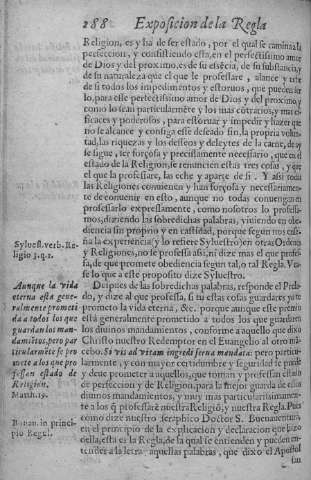 288 Exposicion de la Regla
Religion, es y ha de ser estado, por el qual se camina à la
perfeccion, y consistiendo esta, en el perfectissimo amor
de Dios y del proximo, es de su essẽcia, de su substancia, y
de su naturaleza que el que le professare, alance y tire
de si todos los impedimentos y estoruos, que pueden ser
lo, para este perfectissimo amor de Dios y del proximo, y
como lo sean particularmẽte y los mas cõtrarios, y mas ef
ficaces y poderosos, para estoruar y impedir y hazer que
no se alcance y consiga esse desseado fin, la propria volun
tad, las riquezas y los desseos y deleytes de la carne, de ay
se sigue, ser forçosa y precissamente necessario, que en el
estado de la Religion, se renuncien estas tres cosas, y que
el que la professare, las eche y aparte de si. Y assi todas
las Religiones conuienen y han forçosa y necessariamen-
te de conuenir en esto, aunque no todas conuengan en
professarlo expressamente, como nosotros lo professa-
mos, diziendo las sobredichas palabras, viuiendo en obe-
diencia sin proprio y en castidad, porque segun nos ense-
ña la experiencia (y lo refiere Syluestro) en otras Ordenes
y Religiones, no se professa assi, ni dize mas el que profes
sa, de que promete obediencia segun tal, o tal Regla. Vea-
se lo que a este proposito dize Syluestro.
Despues de las sobredichas palabras, responde el Prela-
do, y dize al que professa, si tu estas cosas guardares yo te
prometo la vida eterna, &c. porque aunque esse premio
està generalmente prometido a todos los que guardan
los diuinos mandamientos, conforme a aquello que dixo
Christo nuestro Redemptor en el Euangelio al otro mã-
cebo. Si vis ad vitam ingredi serua mandata: pero particu-
larmente, y con mayor certidumbre y seguridad se puede
y deue prometer a aquellos, que toman y professan estado
de perfeccion y de Religion, para la mejor guarda de essos
diuinos mandamientos, y muy mas particularissimamen-
te a los q̃ professarẽ nuestra Religiõ, y nuestra Regla. Pues
como dize nuestro seraphico Doctor S. Buenauentura,
en el principio de la explicacion y declaracion que hizo
della, esta es la Regla, de la qual se entienden y pueden en-
tender a la letra aquellas palabras, que dixo el Apostol
san
Syluest. verb. Re-
ligio 3. q. 2.
Aunque la vida
eterna està gene-
ralmente prometi
da a todos los que
guardan los man-
damiẽtos, pero par
ticularmẽte se pro
mete a los que pro
fessan estado de
Religion.
Matth. 19.
Bonau. in princi-
pio Regul.